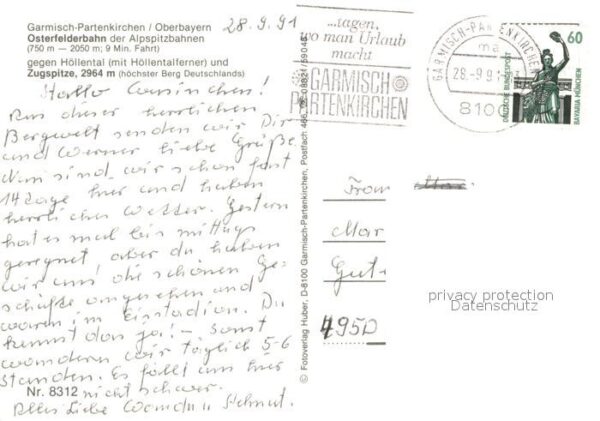 Garmisch-Partenkirchen / Oberbayern
Osterfelderbahn der Alpspitzbahnen
(750 m — 2050 m; 9 Min. Fahrt)
gegen Höllental (mit Höllentalferner) und
Zugspitze, 2964 m (höchster Berg Deutschlands)
28.9.91
Hallo Cousinchen!
Aus dieser herrlichen
Bergwelt senden wir Dir
und Werner liebe Grüße.
Nun sind wir schon fast
14 Tage hier und haben
herrliches Wetter. Gestern
hat es mal bis mittags
geregnet aber da haben
wir uns die schönen Ge-
schäfte angesehen und
waren im Eisstadion. Du
kennst das ja! – Sonst
wandern wir täglich 5-6
Stunden. Es fällt uns hier
nicht schwer.
Alles Liebe Helmut.
Nr. 8312
© Fotoverlag Huber, D-8100 Garmisch-Partenkirchen, Postfach 466
...tagen,
wo man Urlaub
macht
GARMISCH
PARTENKIRCHEN
GARMISCH-PARTENKIRCHEN
ma
28.-9.91
8100
60
DEUTSCHE BUNDESPOST
BAVARIA MÜNCHEN
Frau
Mar
Gut
4950
privacy protection
Datenschutz